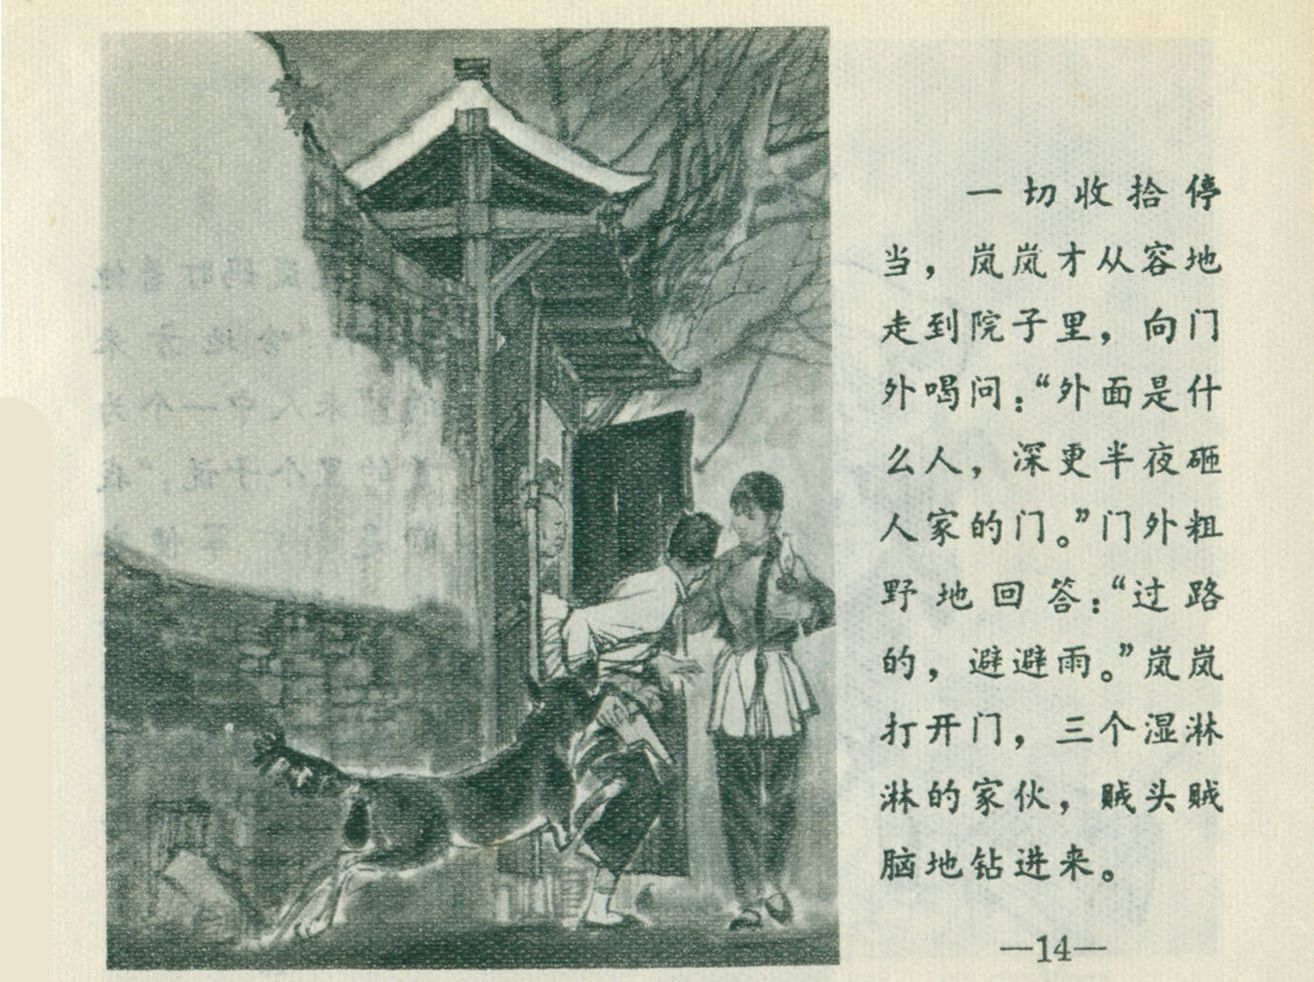 一切收拾停
当，岚岚才从容地
走到院子里，向门
外喝问：“外面是什
么人，深更半夜砸
人家的门。”门外粗
野地回答：“过路
的，避避雨。”岚岚
打开门，三个湿淋
淋的家伙，贼头贼
脑地钻进来。
—14—